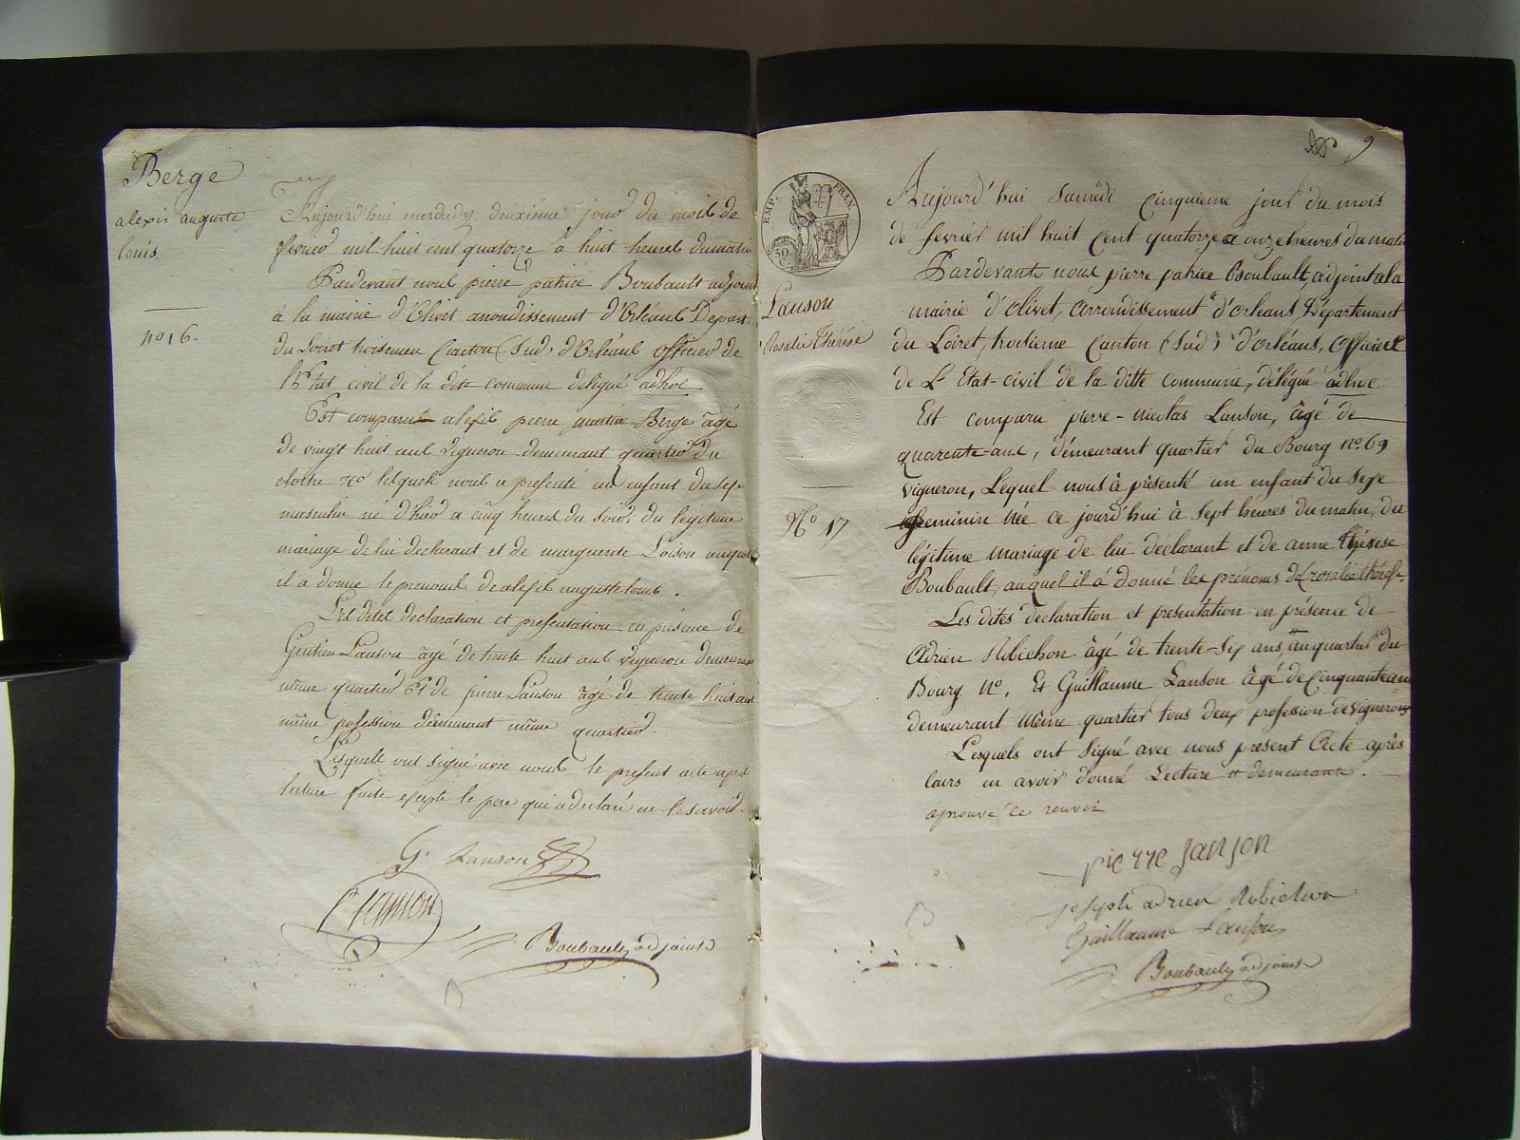 Berge
alexis auguste
louis
nº 16.
Aujourd'hui mercredy deuxieme jour du mois de
fevrier mil huit cent quatorze à huit heures du matin
Pardevant nous pierre patrice Boubault adjoint
à la mairie d'Olivet arrondissement d'Orléans Depart
du Loiret troisieme Canton (Sud) d'Orléans officier de
l'Etat civil de la dite commune délégué adhoc
Est comparu alexis pierre Berge âgé
de vingt huit ans Vigneron demeurant quartier du
cloitre nº lequel nous a presenté un enfant du sexe
masculin né d'hier a cinq heures du soir, du legitime
mariage de lui declarant et de marguerite Loison auquel
il a donné le prenoms de alexis auguste louis.
Les dites declaration et presentation en présence de
Lanson âgé de trente huit ans Vigneron demeurant
même quartier Et de pierre Lanson âgé de trente huit ans
même profession demeurant même quartier.
Lesquels ont signé avec nous le present acte après
lecture faite excepte le pere qui a declaré ne le savoir.
G. Lanson
P Lanson
Boubault adjoint
9
EMP. FRAN.
50
Lanson
Rosalie Thérèse
Nº 17
Aujourd'hui Samedi Cinquieme jour du mois
de fevrier mil huit Cent quatorze a onze heures du matin
Pardevant nous pierre patrice Boubault, adjoint a la
mairie d'Olivet, arrondissement d'Orléans Département
du Loiret, troisieme Canton (Sud) d'Orléans, Officier
de L'Etat-civil de la ditte commune, délégué adhoc
Est comparu pierre-nicolas Lanson, âgé de
quarente-ans, demeurant quartier du Bourg nº 69
vigneron, Lequel nous à présenté un enfant du Sexe
feminin née ce jourd'hui à Sept heures du matin, du
légitime mariage de lui declarant et de anne thérese
Boubault, auquel il à donné les prénoms de rosalie thérèse.
Les dites declaration et presentation en présence de
Adrien Robichon âgé de trente-six ans, quartier du
Bourg Nº, Et Guillaume Lanson âgé de Cinquante ans
demeurant même quartier tous deux profession de vignerons
Lesquels ont signé avec nous present Acte après
leurs en avoir donné Lecture et demeurant.
aprouvé ce renvoi
pierre Lanson
joseph adrien Robichon
Guillaume Lanson
Boubault adjoint